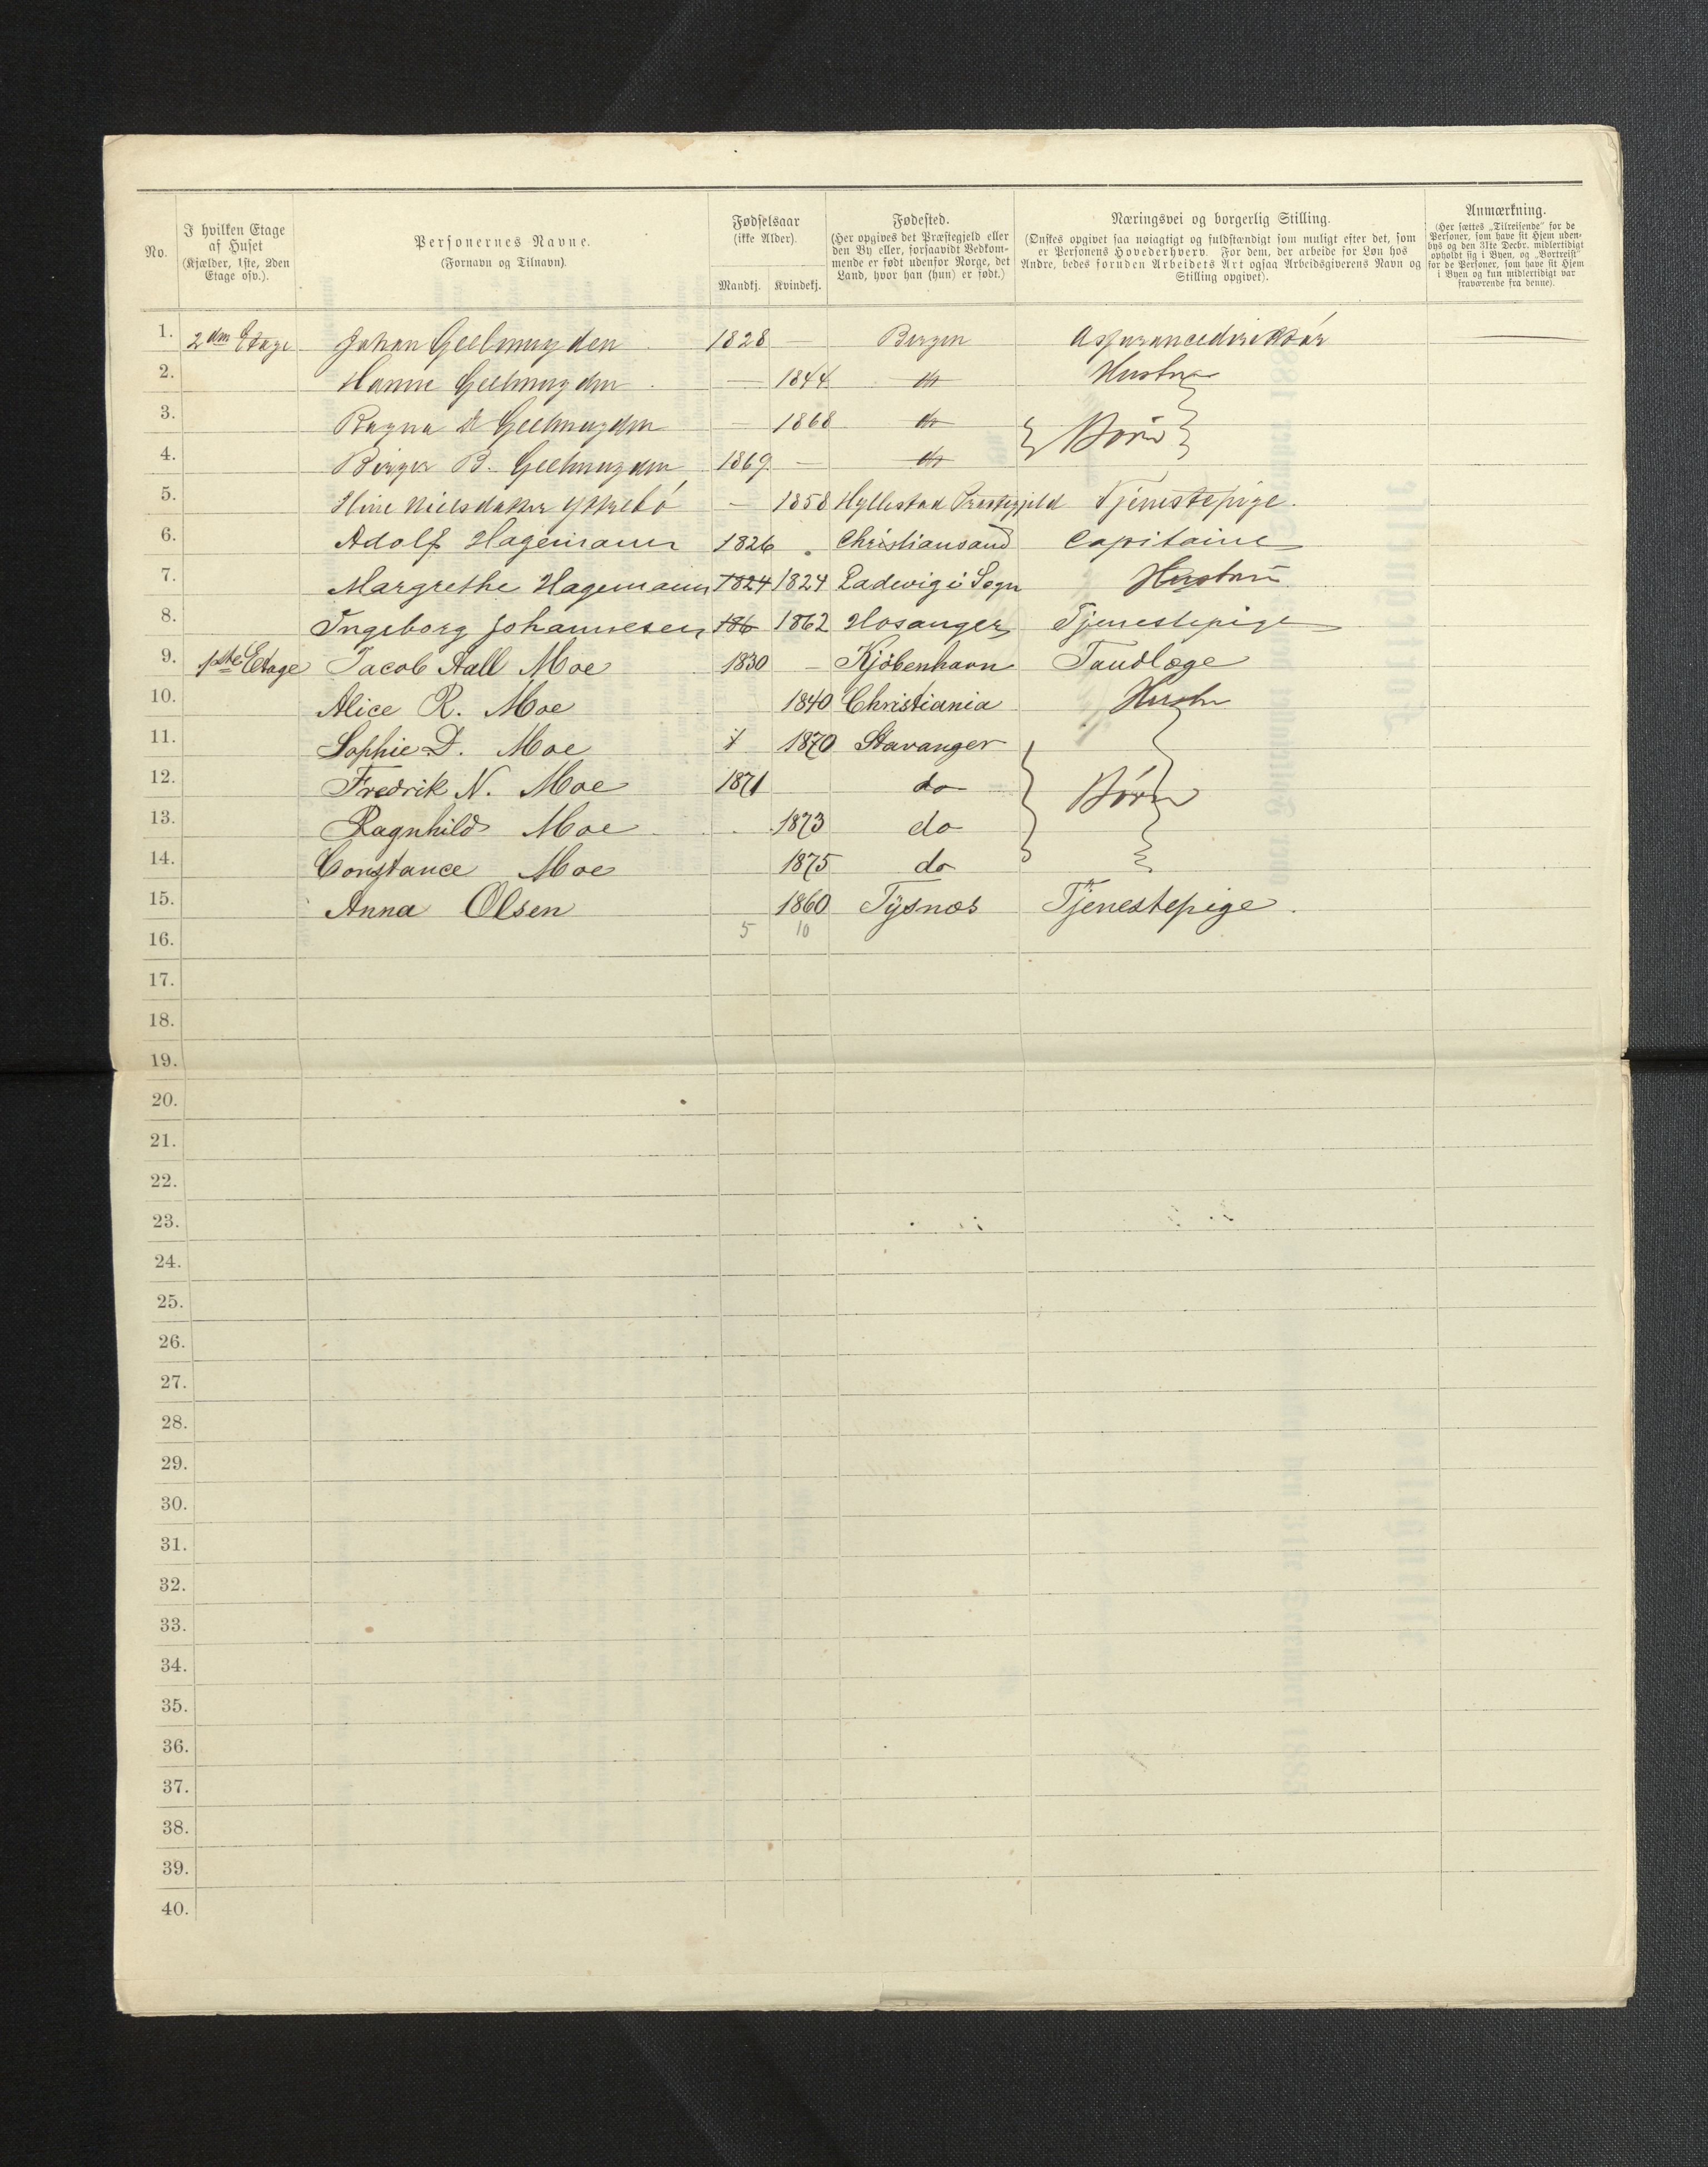 No.
I hvilken Etage
af Huset
(Kjælder, 1ste, 2den
Etage osv.).
Personernes Navne.
(Fornavn og Tilnavn).
Fødselsaar
(ikke Alder).
Mandkj. Kvindekj.
Fødested.
(Her opgives det Præstegjeld eller
den By eller, forsaavidt Vedkom-
mende er født udenfor Norge, det
Land, hvor han (hun) er født.)
Næringsvei og borgerlig Stilling.
(Ønskes opgivet saa nøiagtigt og fuldstændigt som muligt efter det, som
er Personens Hovederhverv. For dem, der arbeide for Løn hos
Andre, bedes foruden Arbeidets Art ogsaa Arbeidsgiverens Navn og
Stilling opgivet).
Anmærkning.
(Her sættes „Tilreisende" for de
Personer, som have sit Hjem uden-
bys og den 31te Decbr. midlertidigt
opholdt sig i Byen, og „Bortreist"
for de Personer, som have sit Hjem
i Byen og kun midlertidigt var
fraværende fra denne).
1. 2den Etage Johan Geelmuyden 1828 — Bergen Assurancedirektør —
2. Hanne Geelmuyden — 1844 do Hustru
3. Ragna Geelmuyden — 1868 do Børn
4. Birger B. Geelmuyden 1869 — do
5. Nielsdatter — 1858 Hyllestad Præstegjeld Tjenestepige.
6. Adolf Hagemann 1826 Christiansand Capitaine
7. Margrethe Hagemann 1824 1824 Ladevig i Sogn Hustru
8. Ingeborg Johannesen 186 1862 Hosanger Tjenestepige
9. 1ste Etage Jacob Aall Moe 1830 — Kjöbenhavn Tandlæge
10. Alice R. Moe 1840 Christiania Hustru
11. Sophie D. Moe 1870 Stavanger
12. Fredrik N. Moe 1871 do Børn
13. Ragnhild Moe 1873 do
14. Constance Moe 1875 do
15. Anna Olsen 1860 Tysnæs Tjenestepige.
16. 5 10
17.
18.
19.
20.
21.
22.
23.
24.
25.
26.
27.
28.
29.
30.
31.
32.
33.
34.
35.
36.
37.
38.
39.
40.